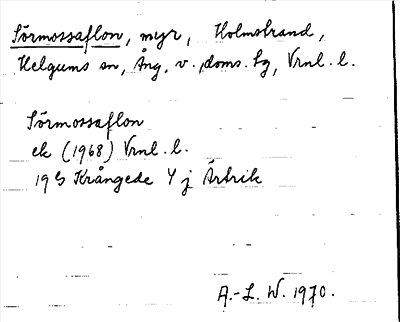 Sörmossaflon, myr, Holmstrand,
Helgums sn, Ång. v. doms. sg, Vrnl. l.
Sörmossaflon
ek (1968) Vrnl. l.
19 G Krångede Y j Ärtrik
A.-L. W. 1970.